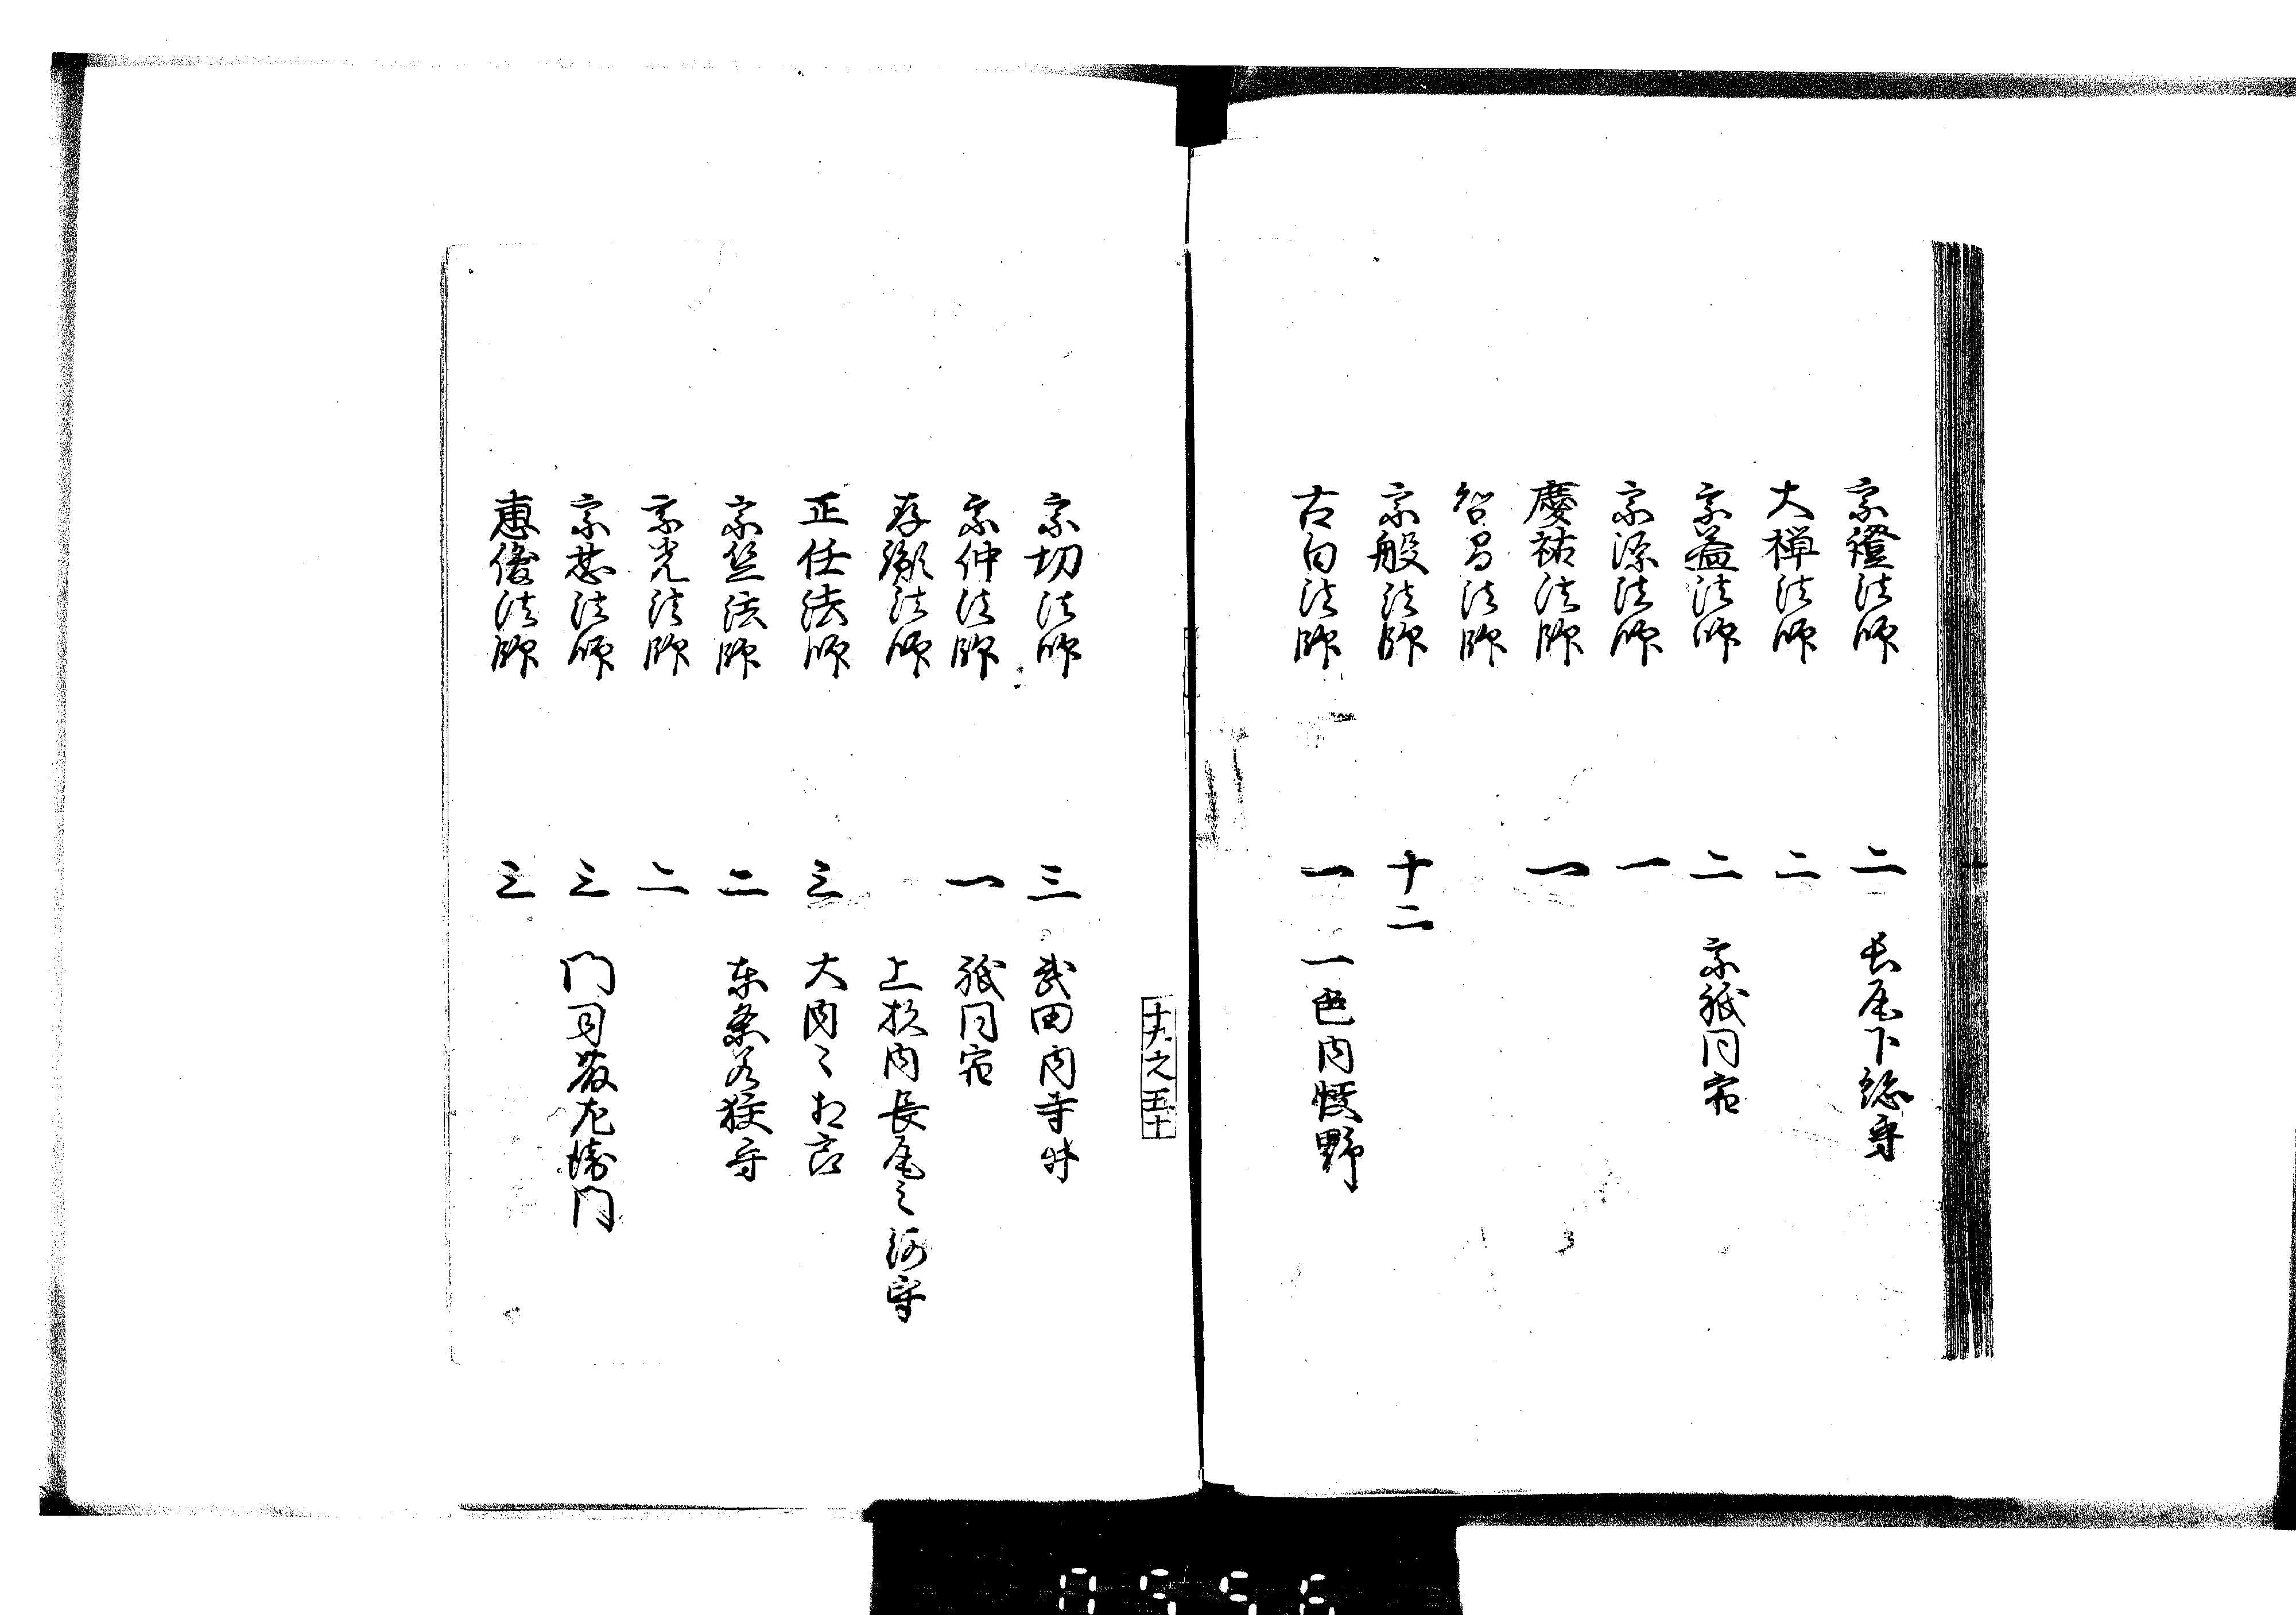 宗澄法師 二 長尾下総守
大禅法師 二
宗益法師 二 宗祇同宿
宗源法師 一
慶祐法師 一
智昌法師
宗般法師 十二
古白法師 一 一色内慨野
宗切法師 三 武田内寺井
宗仲法師 一 祇同宿
存彰法師 上杦内長尾之河守
正任法師 三 大内之相良
宗竺法師 二 东条若狭守
宗光法師 二
宗忍法師 三 門司藤左衛門
恵俊法師 三
十九之五十